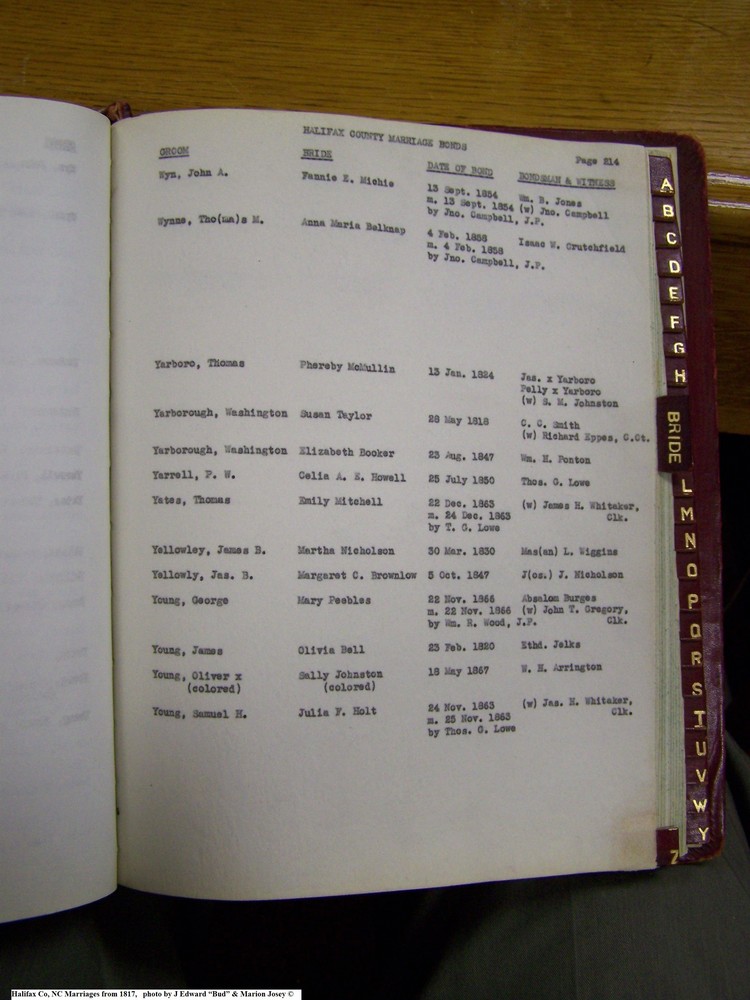 HALIFAX COUNTY MARRIAGE BONDS
Page 214
GROOM BRIDE DATE OF BOND BONDSMAN & WITNESS
Wyn, John A. Fannie E. Michie 13 Sept. 1854 Wm. B. Jones
m. 13 Sept. 1854 (w) Jno. Campbell
by Jno. Campbell, J.P.
Wynns, Tho(ma)s M. Anna Maria Belknap 4 Feb. 1858 Isaac W. Crutchfield
m. 4 Feb. 1858
by Jno. Campbell, J.P.
Yarboro, Thomas Phereby McMullin 13 Jan. 1824 Jas. x Yarboro
Polly x Yarboro
(w) S. M. Johnston
Yarborough, Washington Susan Taylor 28 May 1818 C. C. Smith
(w) Richard Eppes, C.Ct.
Yarborough, Washington Elizabeth Booker 23 Aug. 1847 Wm. H. Ponton
Yarrell, P. W. Celia A. E. Howell 25 July 1850 Thos. G. Lowe
Yates, Thomas Emily Mitchell 22 Dec. 1863 (w) James H. Whitaker,
m. 24 Dec. 1863 Clk.
by T. G. Lowe
Yellowley, James B. Martha Nicholson 30 Mar. 1830 Mas(on) L. Wiggins
Yellowly, Jas. B. Margaret C. Brownlow 5 Oct. 1847 J(os.) J. Nicholson
Young, George Mary Peebles 22 Nov. 1866 Absalom Burges
m. 22 Nov. 1866 (w) John T. Gregory,
by Wm. R. Wood, J.P. Clk.
Young, James Olivia Bell 23 Feb. 1820 Ethd. Jelks
Young, Oliver x Sally Johnston 18 May 1867 W. H. Arrington
(colored) (colored)
Young, Samuel H. Julia F. Holt 24 Nov. 1863 (w) Jas. H. Whitaker,
m. 25 Nov. 1863 Clk.
by Thos. G. Lowe
A
B
C
D
E
F
G
H
BRIDE
L
M
N
O
P
Q
R
S
T
U
V
W
Y
Z
Halifax Co, NC Marriages from 1817, photo by J Edward “Bud” & Marion Josey ©